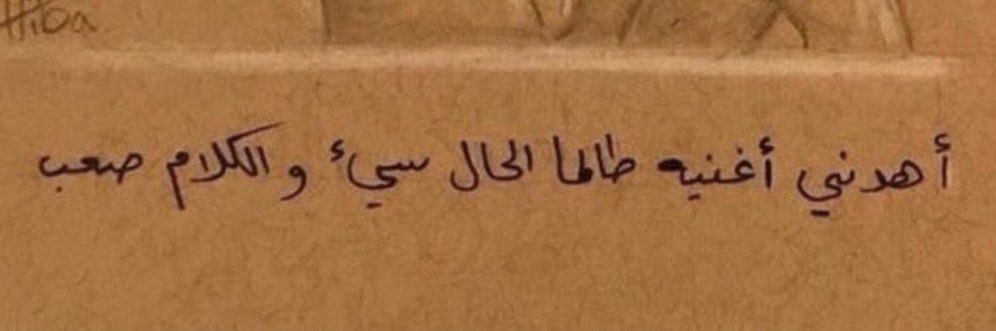 Hiba
أهدني أغنيه طالما الحال سيئ و الكلام صعب